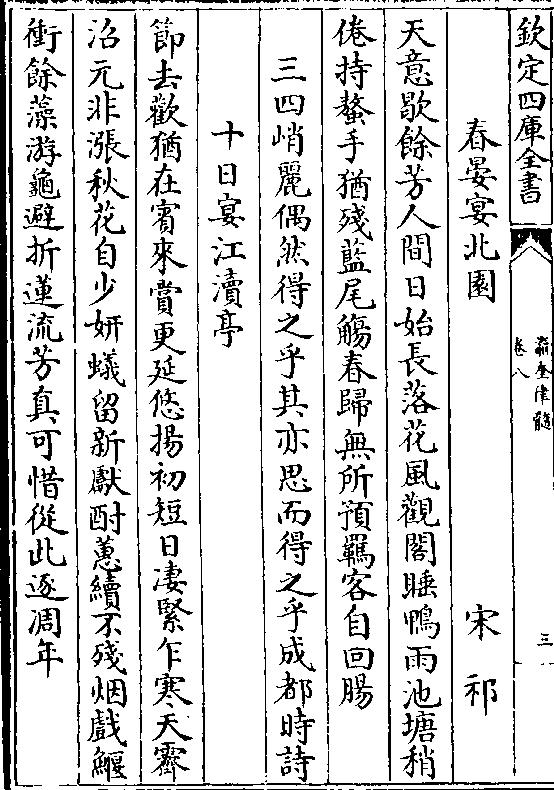 欽定四庫全書
瀛奎律髓
卷八
三
春晏宴北園　宋祁
天意歇餘芳人間日始長落花風觀閣睡鴨雨池塘稍
倦持螯手猶殘藍尾觴春歸無所預羈客自回腸
三四峭麗偶然得之乎其亦思而得之乎成都時詩
十日宴江瀆亭
節去歡猶在賓來賞更延悠揚初短日淒緊乍寒天霽
沼元非漲秋花自少妍蟻留新獻酎蔥續不殘烟戲鰋
衝餘藻游龜避折蓮流芳真可惜從此逐凋年